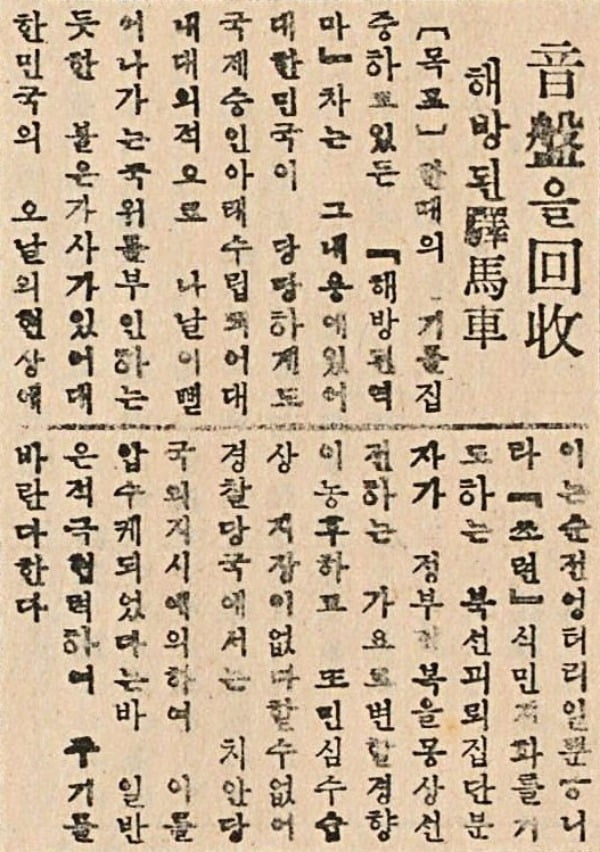 音盤을回收
해방된驛馬車
【목포】한때의 기를집
중하고있든 『해방된역
마』차는 그내용에있어
대한민국이 당당하게도
국제승인아래수립되어대
내대외적으로 나날이뻗
어나가는국위를부인하는
듯한 불은가사가있어대
한민국의 오날의현상에
이는순전엉터리일뿐아니
라 『쏘련』식민지화를기
도하는 북선괴뢰집단분
자가 정부전복을몽상선
전하는 가요로변할경향
이농후하고 또민심수습
상 지장이없다할수없어
경찰당국에서는 치안당
국의지시에의하여 이를
압수케되었다는바 일반
은적극협력하여 주기를
바란다한다